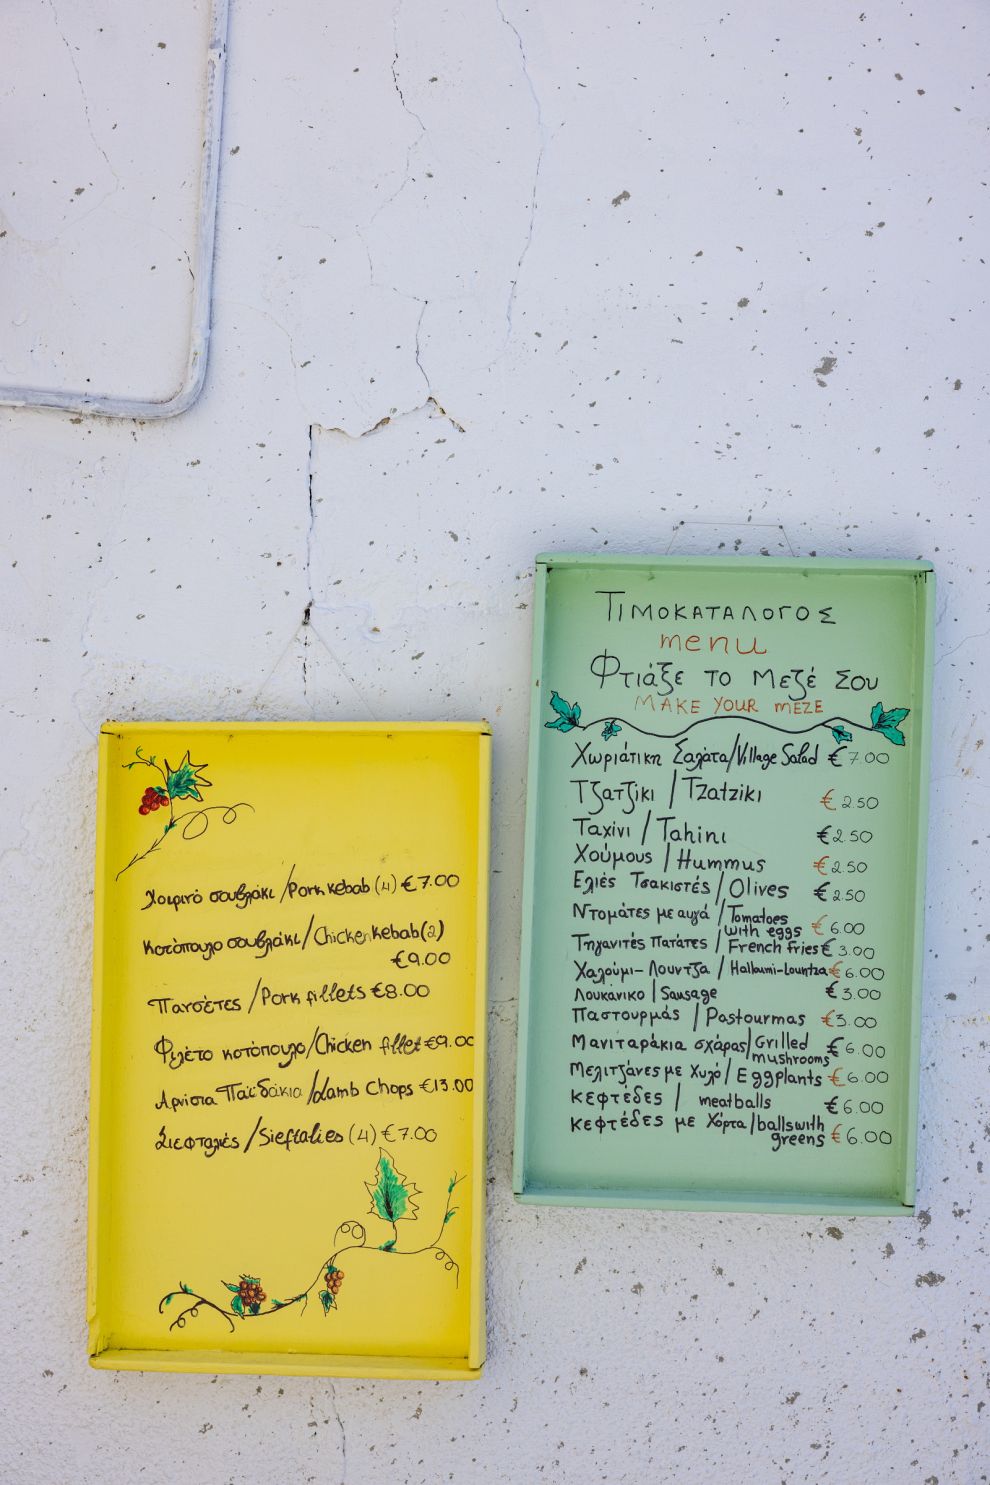 ΤΙΜΟΚΑΤΑΛΟΓΟΣ
menu
Φτιάξε το μεζέ σου
MAKE YOUR MEZE
Χωριάτικη Σαλάτα/Village Salad €7.00
Τζατζίκι / Tzatziki €2.50
Ταχίνι / Tahini €2.50
Χούμους / Hummus €2.50
Ελιές Τσακιστές / Olives €2.50
Ντομάτες με αυγά / Tomatoes
with eggs €6.00
Τηγανιτές πατάτες / French fries €3.00
Χαλούμι-Λουντζα / Halloumi-Lountza €6.00
Λουκάνικο | Sausage €3.00
Παστουρμάς / Pastourmas €3.00
Μανιταράκια σχάρας/Grilled
mushrooms €6.00
Μελιτζάνες με χυλό / Eggplants €6.00
κεφτέδες / meatballs €6.00
κεφτέδες με χόρτα/balls with
greens €6.00
Χοιρινό σουβλάκι /Pork kebab (4) €7.00
Κοτόπουλο σουβλάκι/Chicken kebab(2)
€9.00
Πανσέτες /Pork fillets €8.00
Φιλέτο κοτόπουλο/Chicken fillet €9.00
Αρνίσια Παϊδάκια /Lamb Chops €13.00
Σιεφταλιές /Sieftalies (4) €7.00